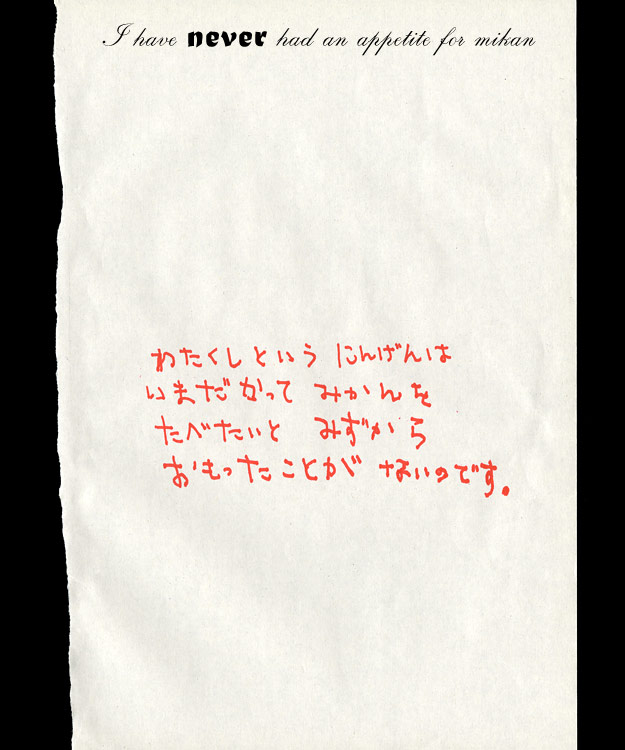 I have never had an appetite for mikan
わたくしという にんげんは
いまだかつて みかんを
たべたいと みずから
おもったことが ないのです。